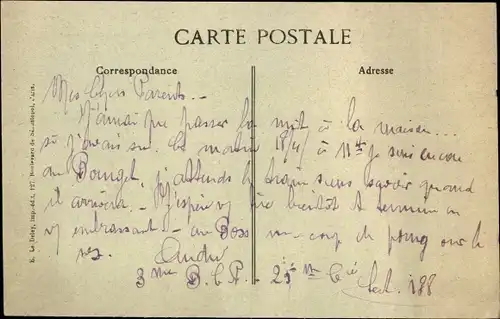 CARTE POSTALE
Correspondance
Adresse
Mes Chers Parents. -
J'aurai pu passer la nuit à la maison...
si j'avais su. Ce matin 18/4/ à 11h je suis encore
au Bourget, j'attends le train sans savoir quand
il arrivera. - J'espère vs lire bientôt et termine en
vs embrassant - au Boss un coup de poing sur le
nez. André
3me B.C.P. - 25me Cie Sect. 188
E. Le Deley, imp.-édit., 127, Boulevard de Sébastopol, Paris.